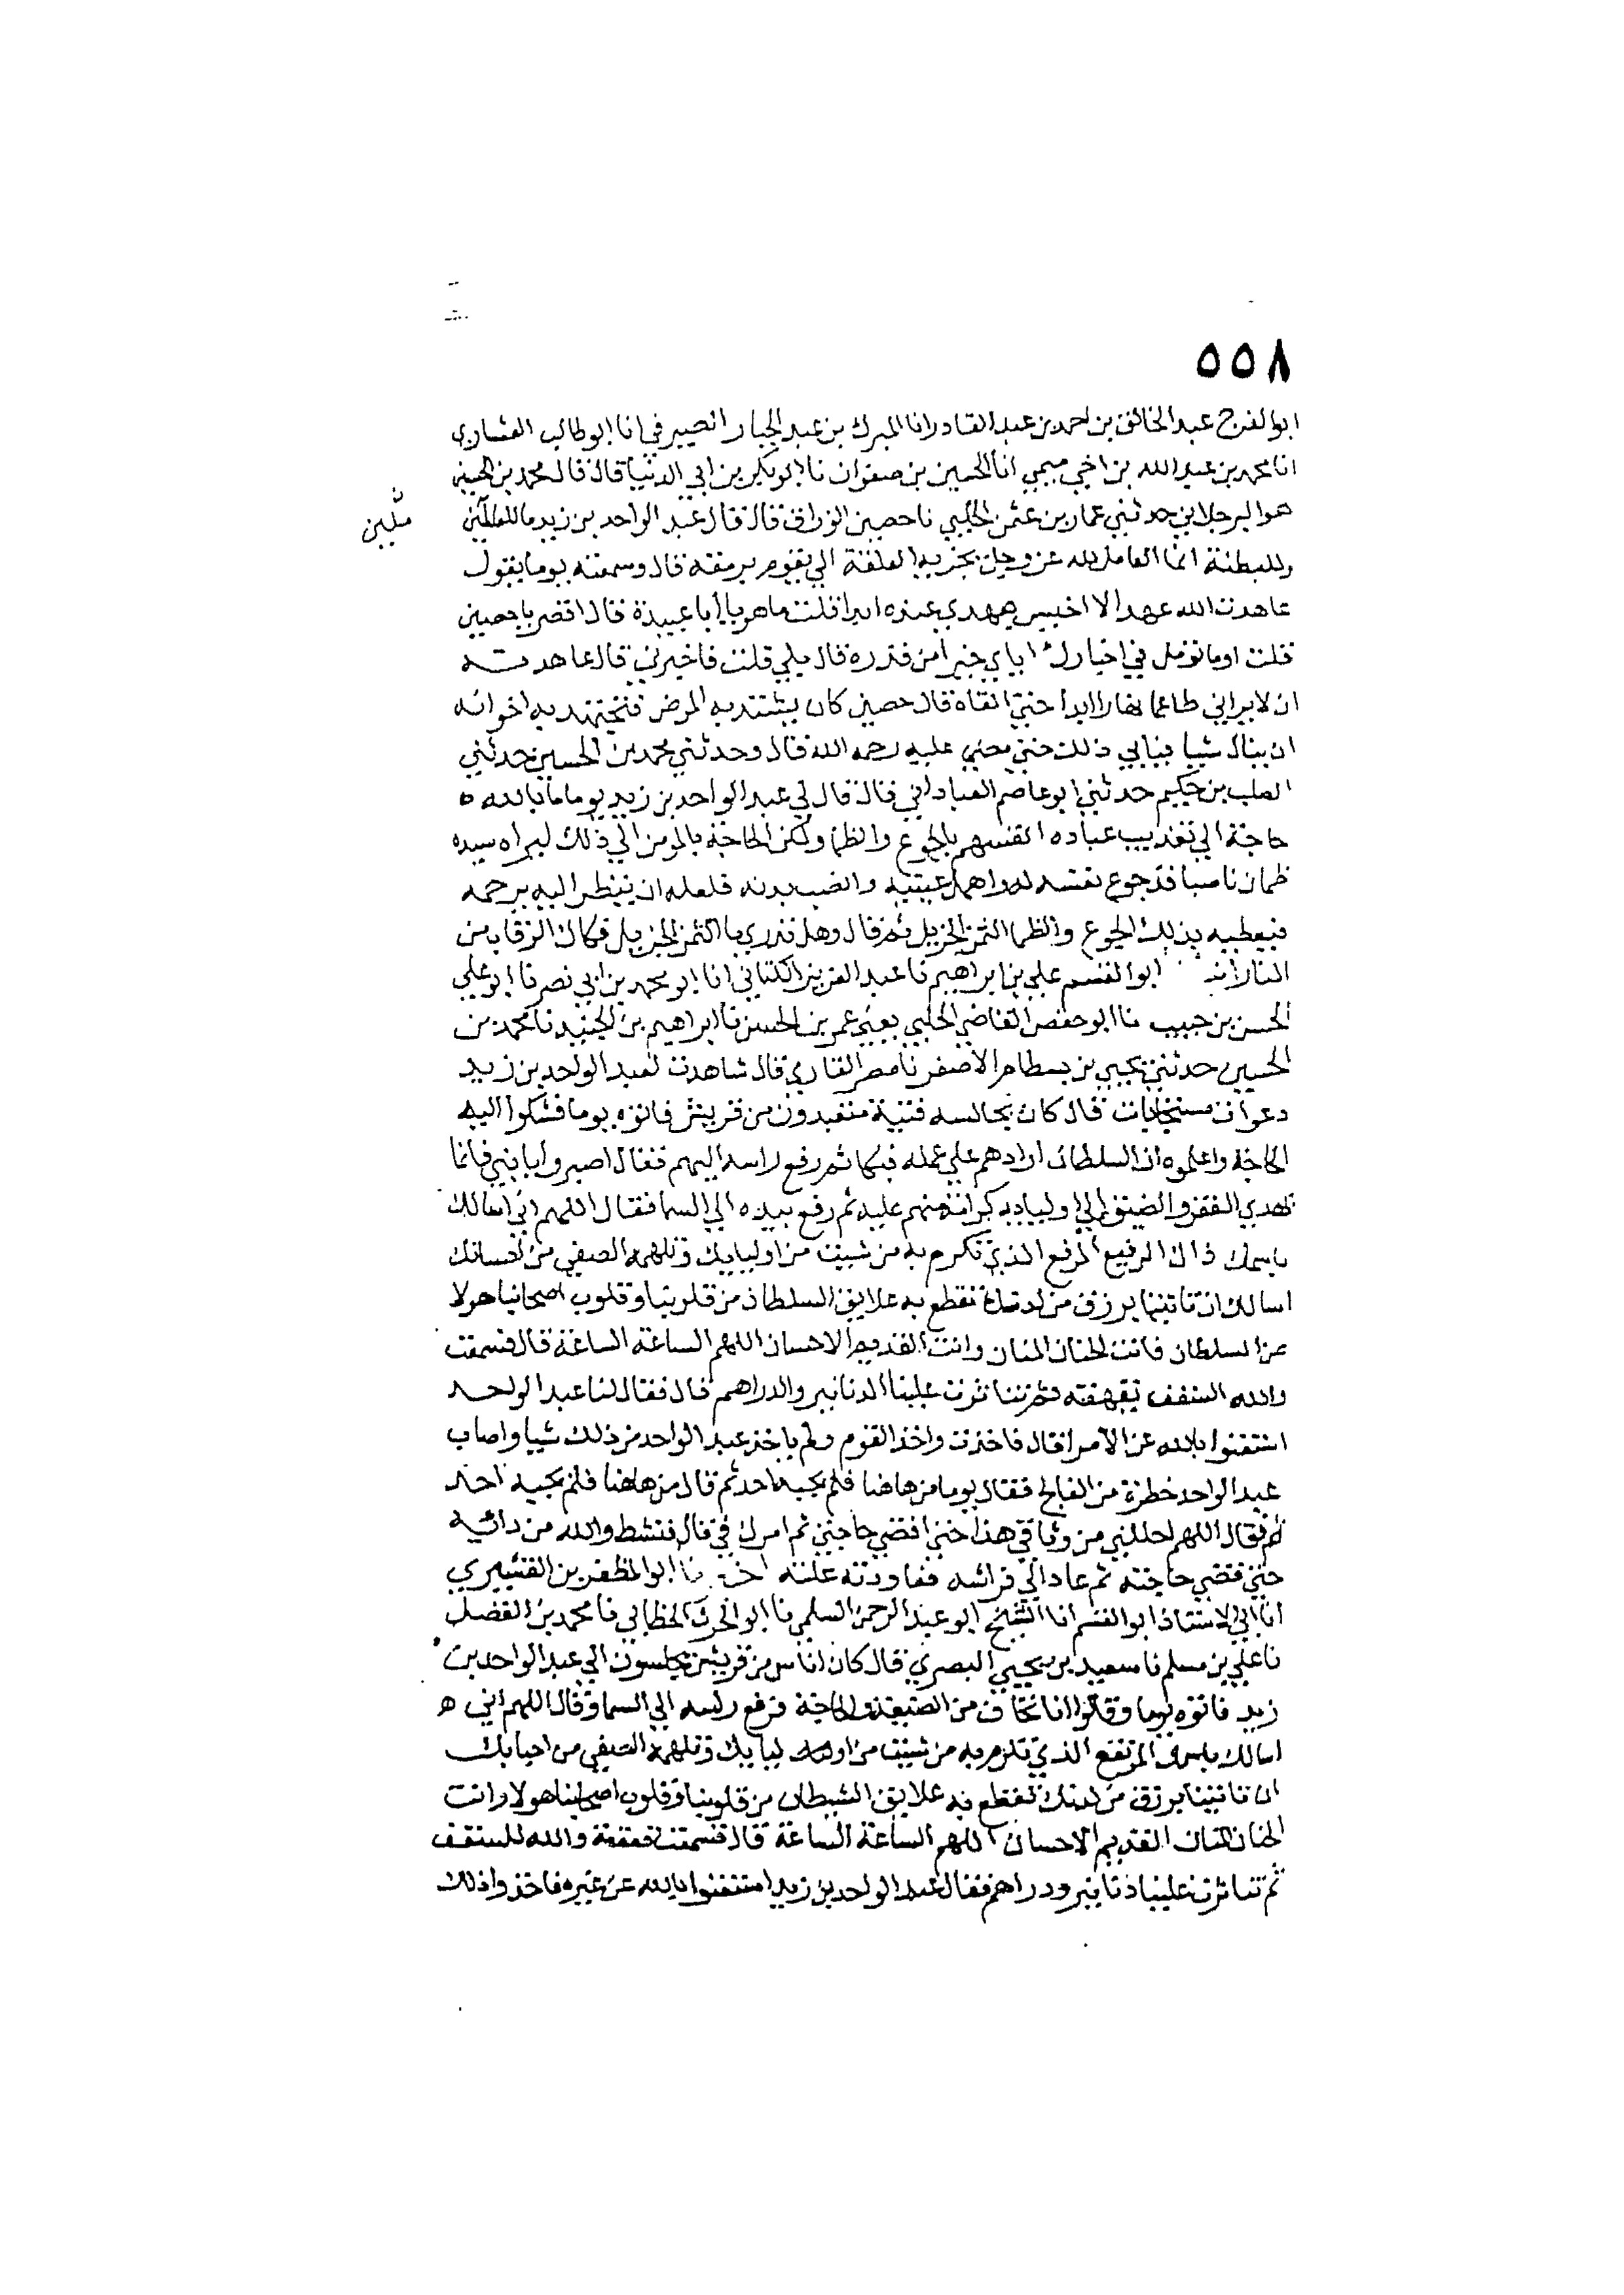 ٥٥٨
ابو الفرج عبد الخالق بن احمد بن عبد القادر انا المبرك بن عبد الجبار الصيرفي انا ابو طالب العشاري
انا محمد بن عبد الله بن اخي ميمي انا الحسين بن صفوان نا ابو بكر بن ابي الدنيا قال قال محمد بن الحسين
هو البرجلاني حدثني عمار بن عثمن الحلبي نا حصين الوزاق قال قال عبد الواحد بن زيد ما للعاملين
وللبطنة انما العامل لله عز وجل يجزيه العلقة الي تقوم برمقه قال وسمعته يوما يقول
عاهدت الله عهدا لا اخيس بعهدي عنده ابدا قلت ما هو يا ابا عبيدة قال اقصر يا حصين
قلت اوما تومل في اخبارك اياي خيرا من قدره قال بلي قلت فاخبرني قال عاهدته
ان لا يراني طاعما نهارا ابدا حتي القاه قال حصين كان يشتد به المرض فيجتهد به اخوانه
ان ينال شيا فيابي ذلك حتي مضي عليه رحمه الله قال وحدثني محمد بن الحسين حدثني
الصلب بن حكيم حدثني ابو عاصم العباداني قال قال لي عبد الواحد بن زيد يوما ما بالله ه
حاجة الي تعذيب عباده انفسهم بالجوع والظما ولكن الحاجة بالمومن الي ذلك ليراه سيده
ظمان ناصبا قد جوع نفسه له واهمل عينيه وانصب بدنه فلعله ان ينظر اليه برحمه
فيعطيه بذلك الجوع والظما الثمن الجزيل ثم قال وهل تدري ما الثمن الجزيل فكاك الرقاب من
النار ابو القسم علي بن ابراهيم نا عبد العزيز الكتاني انا ابو محمد بن ابي نصر نا ابو علي
الحسن بن حبيب نا ابو حفص القاضي الحلبي يعني عمر بن الحسن نا ابراهيم بن الجنيد نا محمد بن
الحسين حدثني يحيي بن بسطام الاصفر نا مصر القاري قال شاهدت لعبد الواحد بن زيد
دعوات مستجابات قال كان يجالسه فتية متعبدون من قريش فاتوه يوما فشكوا اليه
الحاجة واعلموه ان السلطان ارادهم علي عمله فبكا ثم رفع راسه اليهم فقال اصبروا يا بني فانما
يهدي الفقر والضيق الي اوليايه كرامته منهم عليه ثم رفع يده الي السما فقال اللهم اني اسالك
باسمك ذاك الرفيع المرفع الذي تكرم به من شيت من اوليايك وتلهمه الصفي من احسانك
اسالك ان تاتينا برزق من لدنك تقطع به علايق السلطان من قلوبنا وقلوب اصحابنا هولا
عن السلطان فانت الحنان المنان وانت القديم الاحسان اللهم الساعة الساعة قال فسمعت
والله السقف يقهقه ثم تناثرت علينا الدنانير والدراهم قال فقال لنا عبد الواحد
استغنوا بالله عن الامرا قال فاخذت واخذ القوم ولم ياخذ عبد الواحد من ذلك شيا واصاب
عبد الواحد خطرة من الفالج فقال يوما من هاهنا فلم يجبه احد ثم قال من هاهنا فلم يجبه احد
ثم فقال اللهم احللني من وثاقي هذا حتي اقضي حاجتي ثم امرك في قال فنشط والله من دائه
حتي قضي حاجته ثم عاد الي فراشه فعاودته علته نا ابو المظفر بن القشيري
انا ابي الاستاذ ابو القسم انا الشيخ ابو عبد الرحمن السلمي نا ابو الحرث الخطابي نا محمد بن الفضل
نا علي بن مسلم نا سعيد بن يحيي البصري قال كان اناس من قريش يجلسون الي عبد الواحد بن
زيد فاتوه يوما وقالوا انا نخاف من الضيقة والحاجة فرفع راسه الي السما وقال اللهم اني ه
اسالك باسمك المرتفع الذي تكرم به من شيت من اوليايك وتلهمه الصفي من احبابك
ان تاتينا برزق من لدنك تقطع به علايق الشيطان من قلوبنا وقلوب اصحابنا هولا وانت
الحنان المنان القديم الاحسان اللهم الساعة الساعة قال فسمعت قعقعة والله للسقف
ثم تناثرت علينا دنانير ودراهم فقال عبد الواحد بن زيد استغنوا بالله عن غيره فاخذوا ذلك